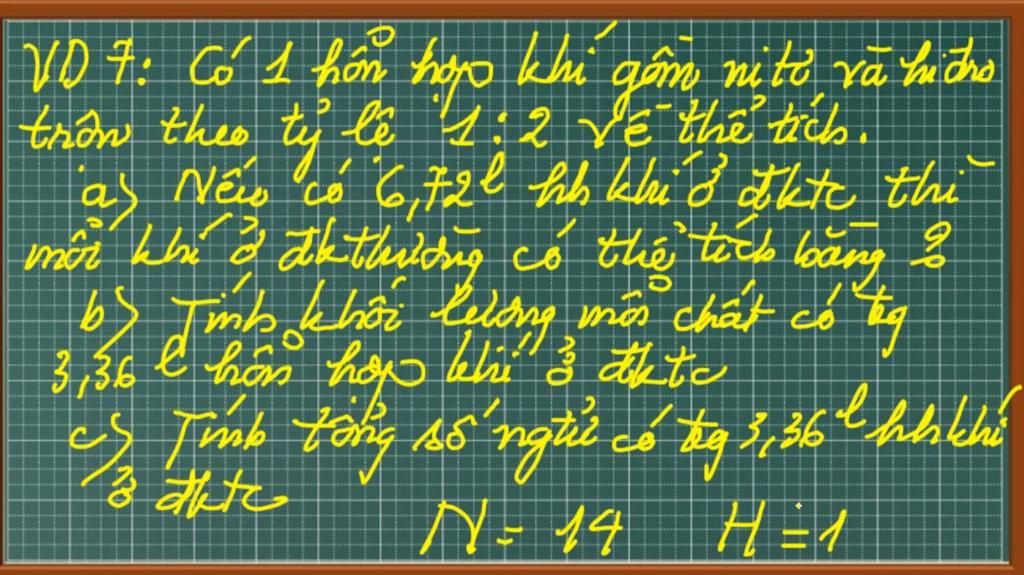 VD 7: Có 1 hỗn hợp khí gồm nitơ và hiđro
trộn theo tỷ lệ 1 : 2 về thể tích.
a) Nếu có 6,72 l hh khí ở đktc thì
mỗi khí ở đk thường có thể tích bằng ?
b) Tính khối lượng mỗi chất có tg
3,36 l hỗn hợp khí ở đktc
c) Tính tổng số ngtử có tg 3,36 l hh khí
ở đktc
N = 14 H = 1